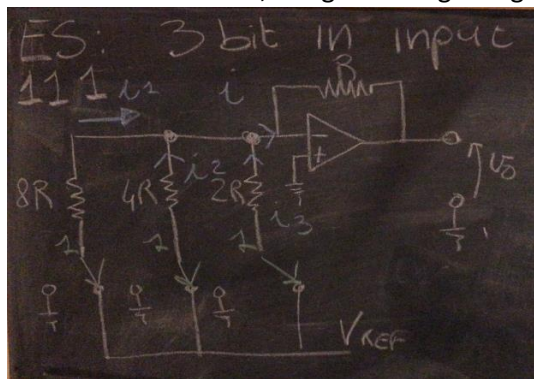 ES: 3 bit in input
111 i1 i R
- +
8R 4R i2 2R vo
i3
1 1 1
VREF